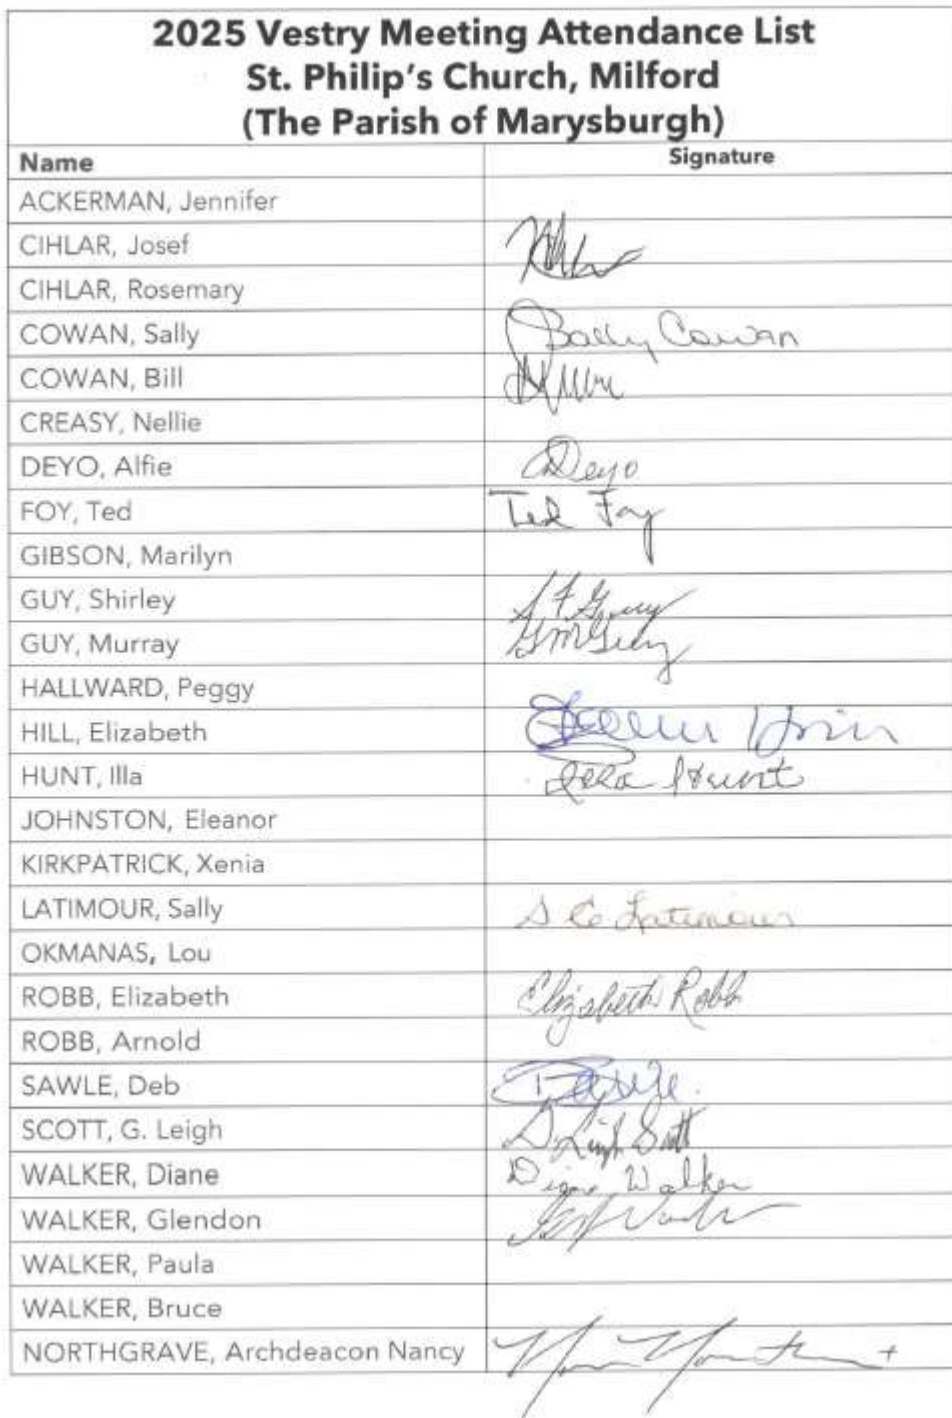 2025 Vestry Meeting Attendance List
St. Philip's Church, Milford
(The Parish of Marysburgh)
Name Signature
ACKERMAN, Jennifer
CIHLAR, Josef
CIHLAR, Rosemary
COWAN, Sally Sally Cowan
COWAN, Bill
CREASY, Nellie
DEYO, Alfie ADeyo
FOY, Ted Ted Foy
GIBSON, Marilyn
GUY, Shirley S F Guy
GUY, Murray GMGuy
HALLWARD, Peggy
HILL, Elizabeth
HUNT, Illa Illa Hunt
JOHNSTON, Eleanor
KIRKPATRICK, Xenia
LATIMOUR, Sally S C Latimour
OKMANAS, Lou
ROBB, Elizabeth Elizabeth Robb
ROBB, Arnold
SAWLE, Deb
SCOTT, G. Leigh G. Leigh Scott
WALKER, Diane Diane Walker
WALKER, Glendon
WALKER, Paula
WALKER, Bruce
NORTHGRAVE, Archdeacon Nancy